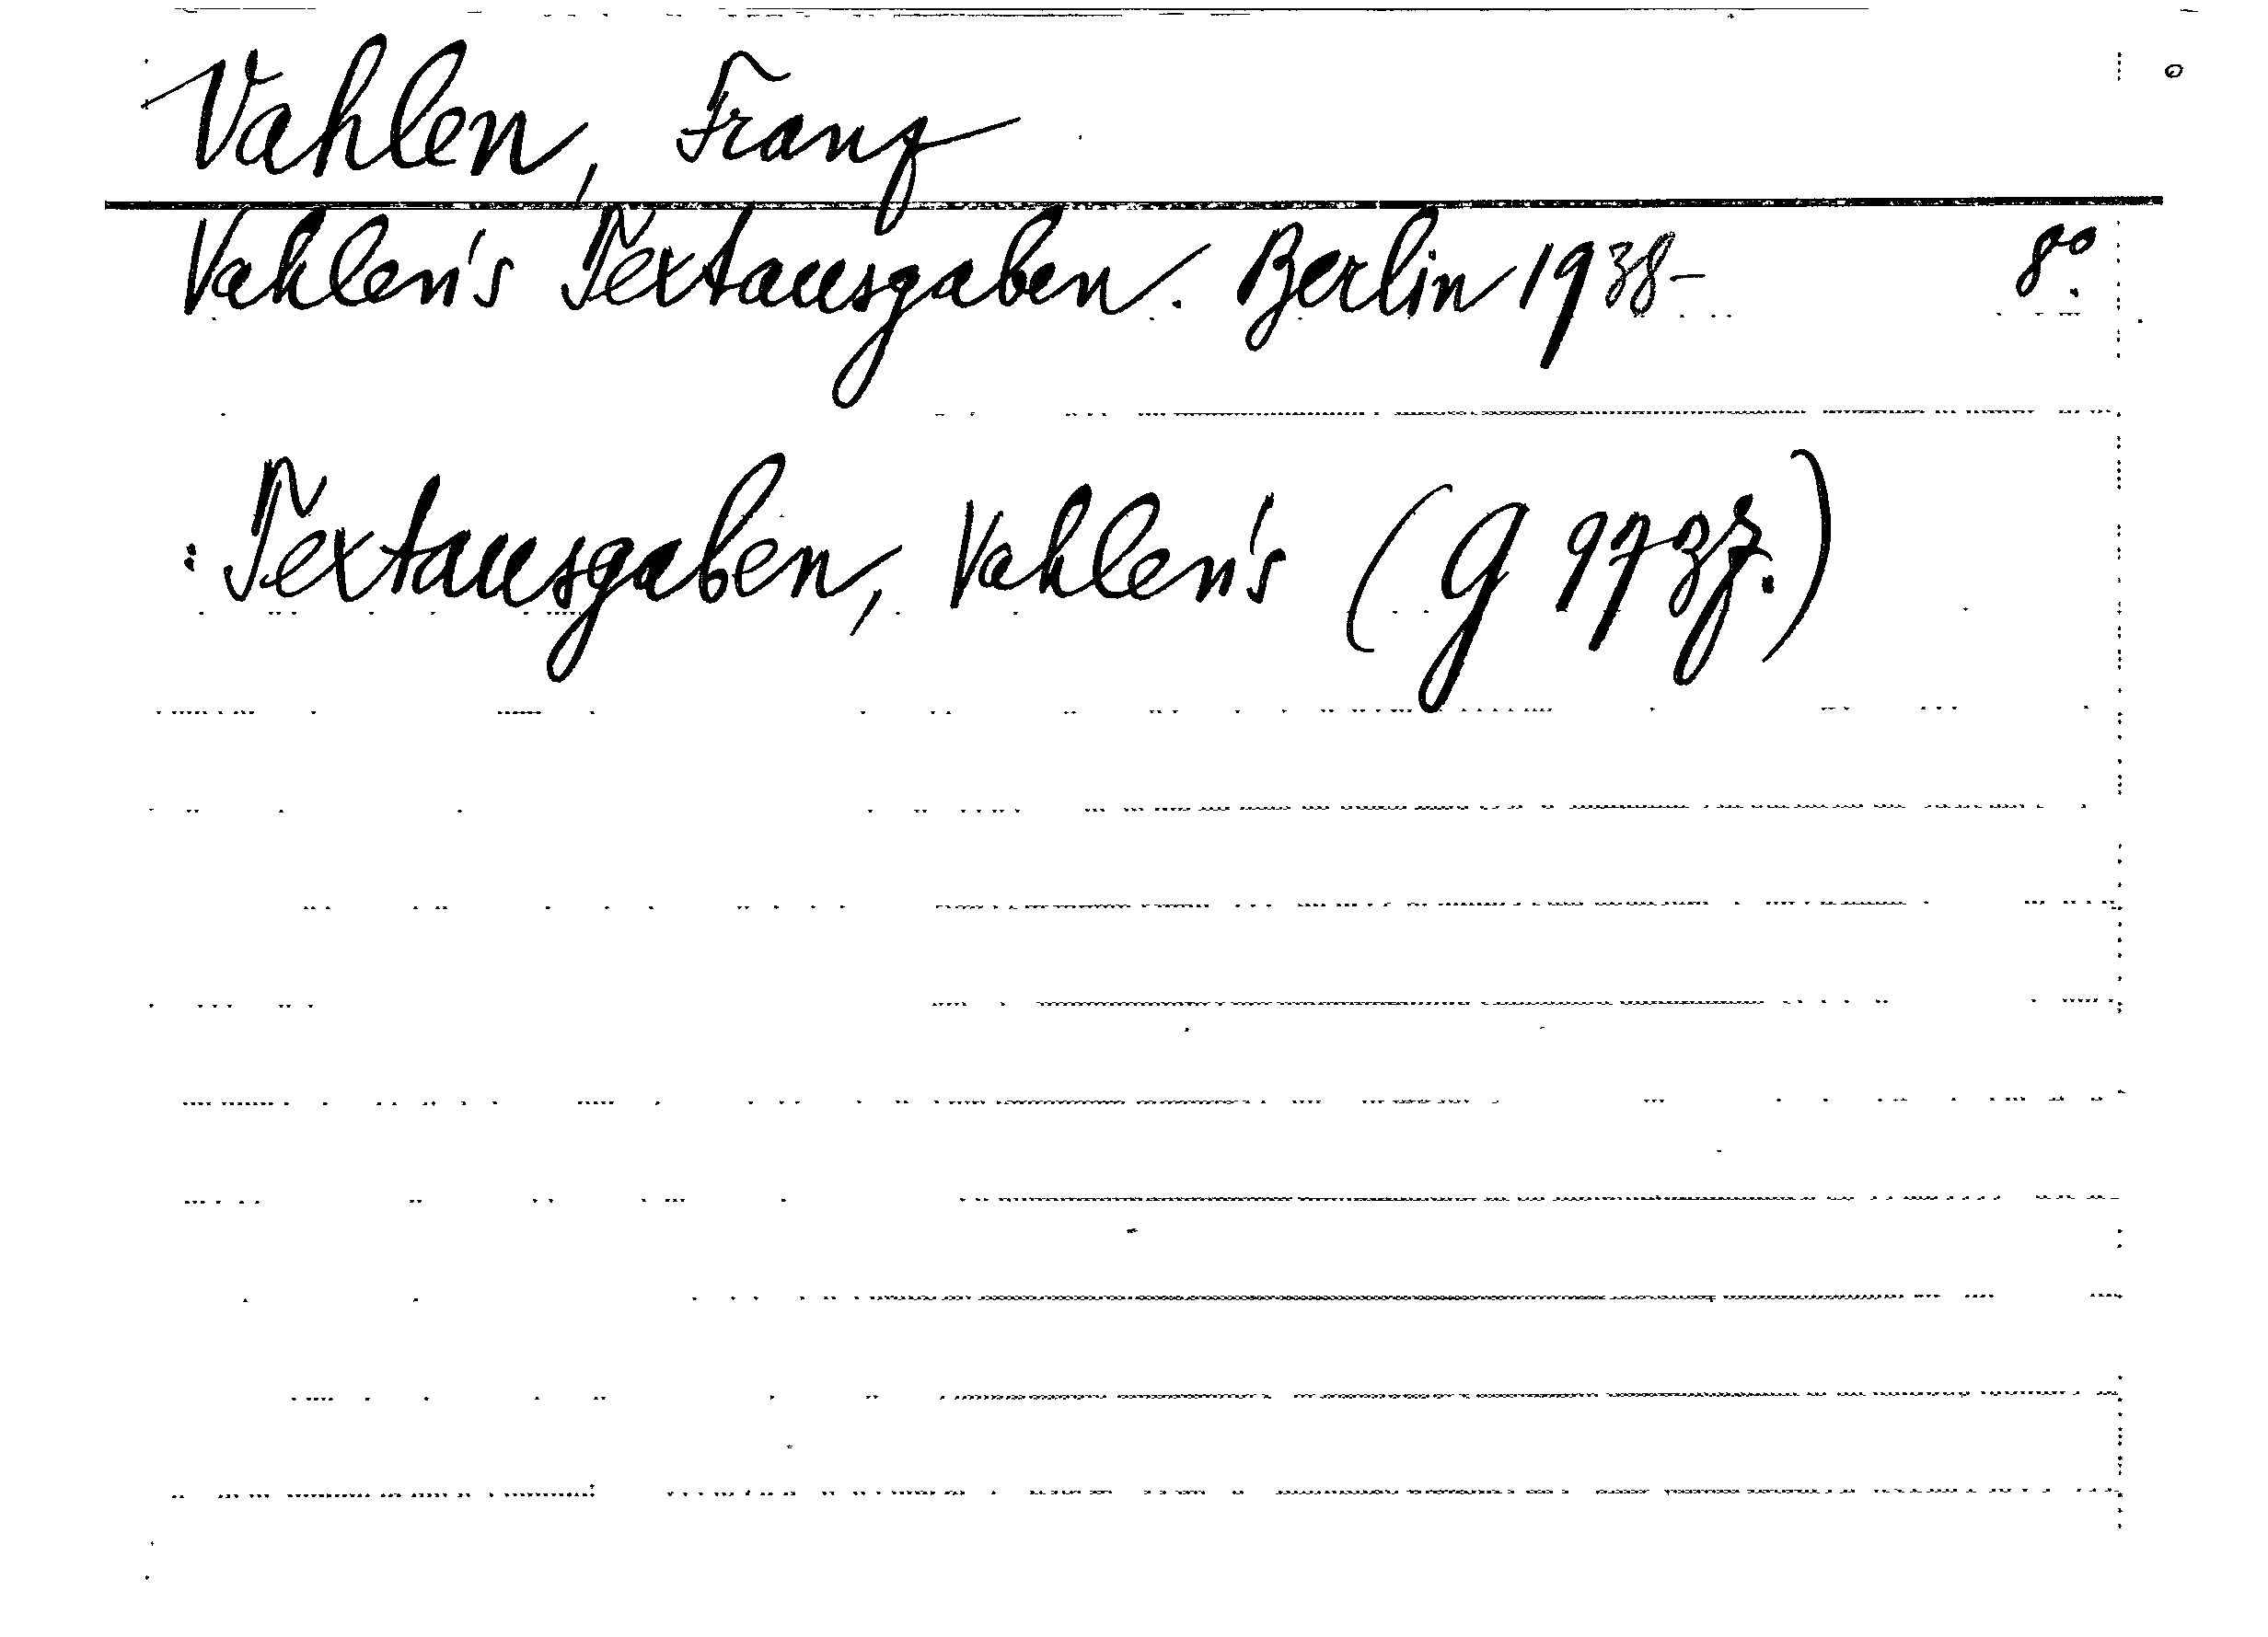 Vahlen, Franz
Vahlen's Textausgaben. Berlin 1938- 8°.
: Textausgaben, Vahlen's (G 9737.)